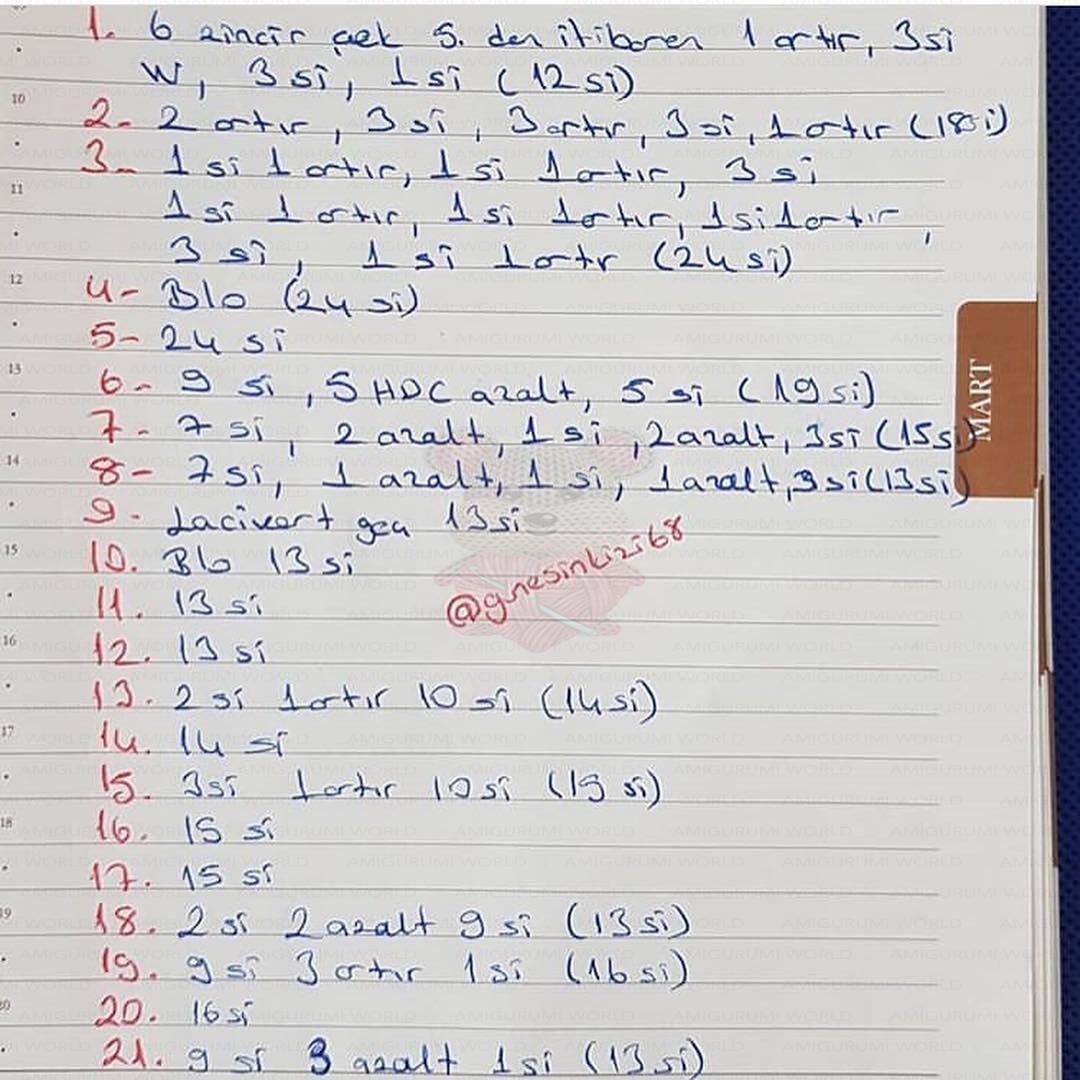 1. 6 zincir çek 5. den itibaren 1 artır, 3si
W, 3 si, 1si (12si)
10
2- 2 artır, 3 si, 3artır, 3si, 1artır (18si)
3- 1 si 1 artır, 1si 1artır, 3 si
11
1si 1 artır, 1si 1artır, 1si1artır,
3 si, 1 si 1artr (24si)
12
4- Blo (24 si)
5- 24 si
13
6- 9 si, 5 HDC azalt, 5 si (19si)
MART
7- 7 si, 2 azalt, 1 si, 2azalt, 3si (15si)
14
8- 7si, 1 azalt, 1 si, 1azalt, 3si(13si)
9- Lacivert geç 13si
15
10. Blo 13 si
@gnesinkizi68
11. 13 si
16
12. 13 si
13. 2 si 1artır 10 si (14si)
17
14. 14 si
15. 3si 1artır 10si (15 si)
18
16. 15 si
AMIGURUMI WORLD
17. 15 si
19
18. 2 si 2 azalt 9 si (13si)
19. 9si 3 artır 1si (16si)
20
20. 16si
21. 9 si 3 azalt 1si (13si)